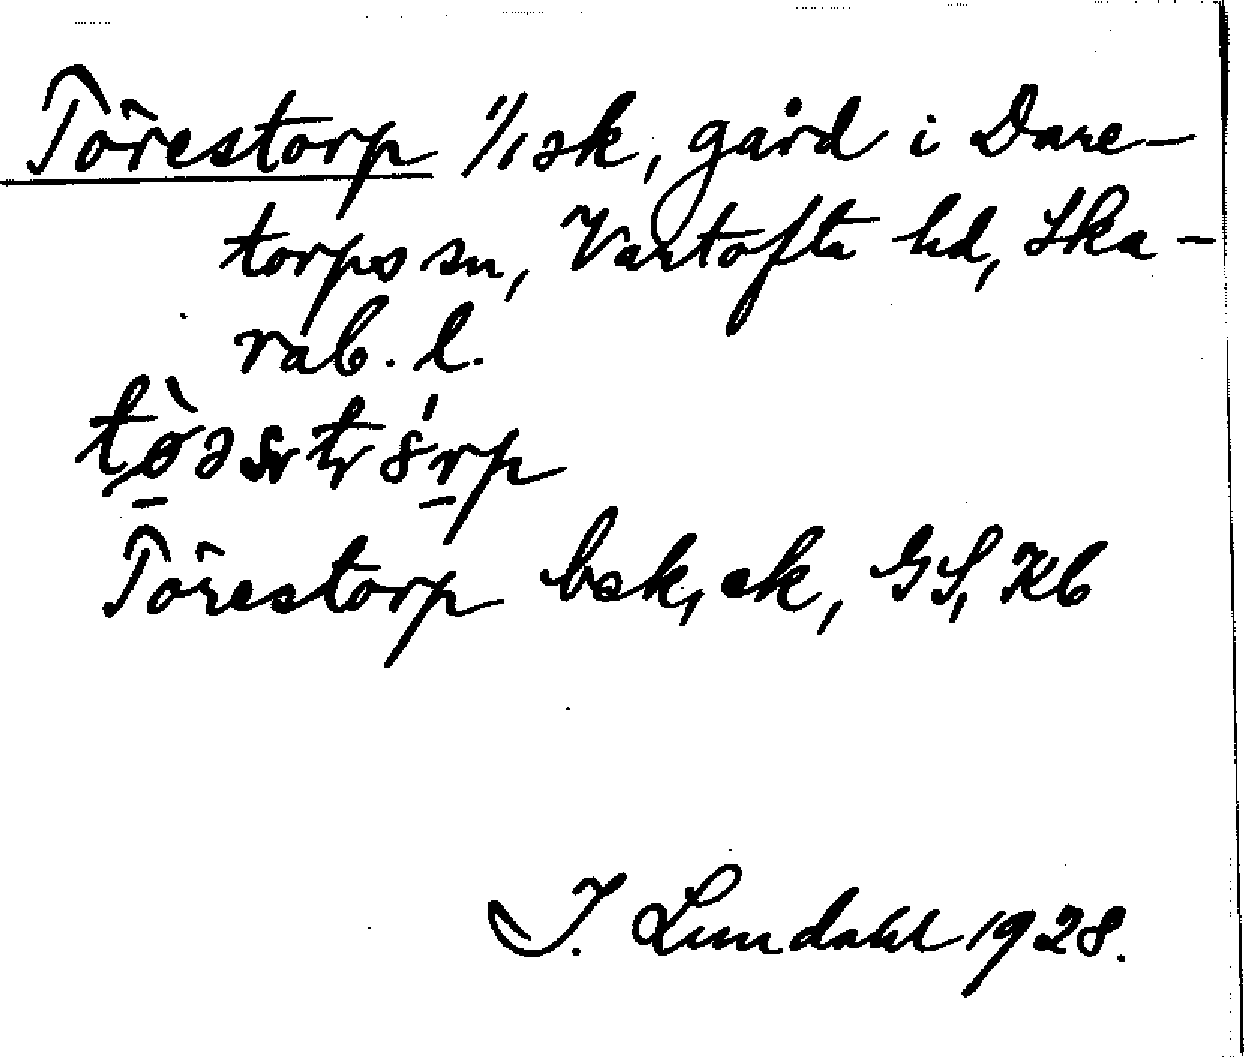 Törestorp 1/1 sk, gård i Dare-
torps sn, Vartofta hd, Ska-
rab. l.
Törestorp bsk, ek, GS, Kb
I. Lundahl 1928.